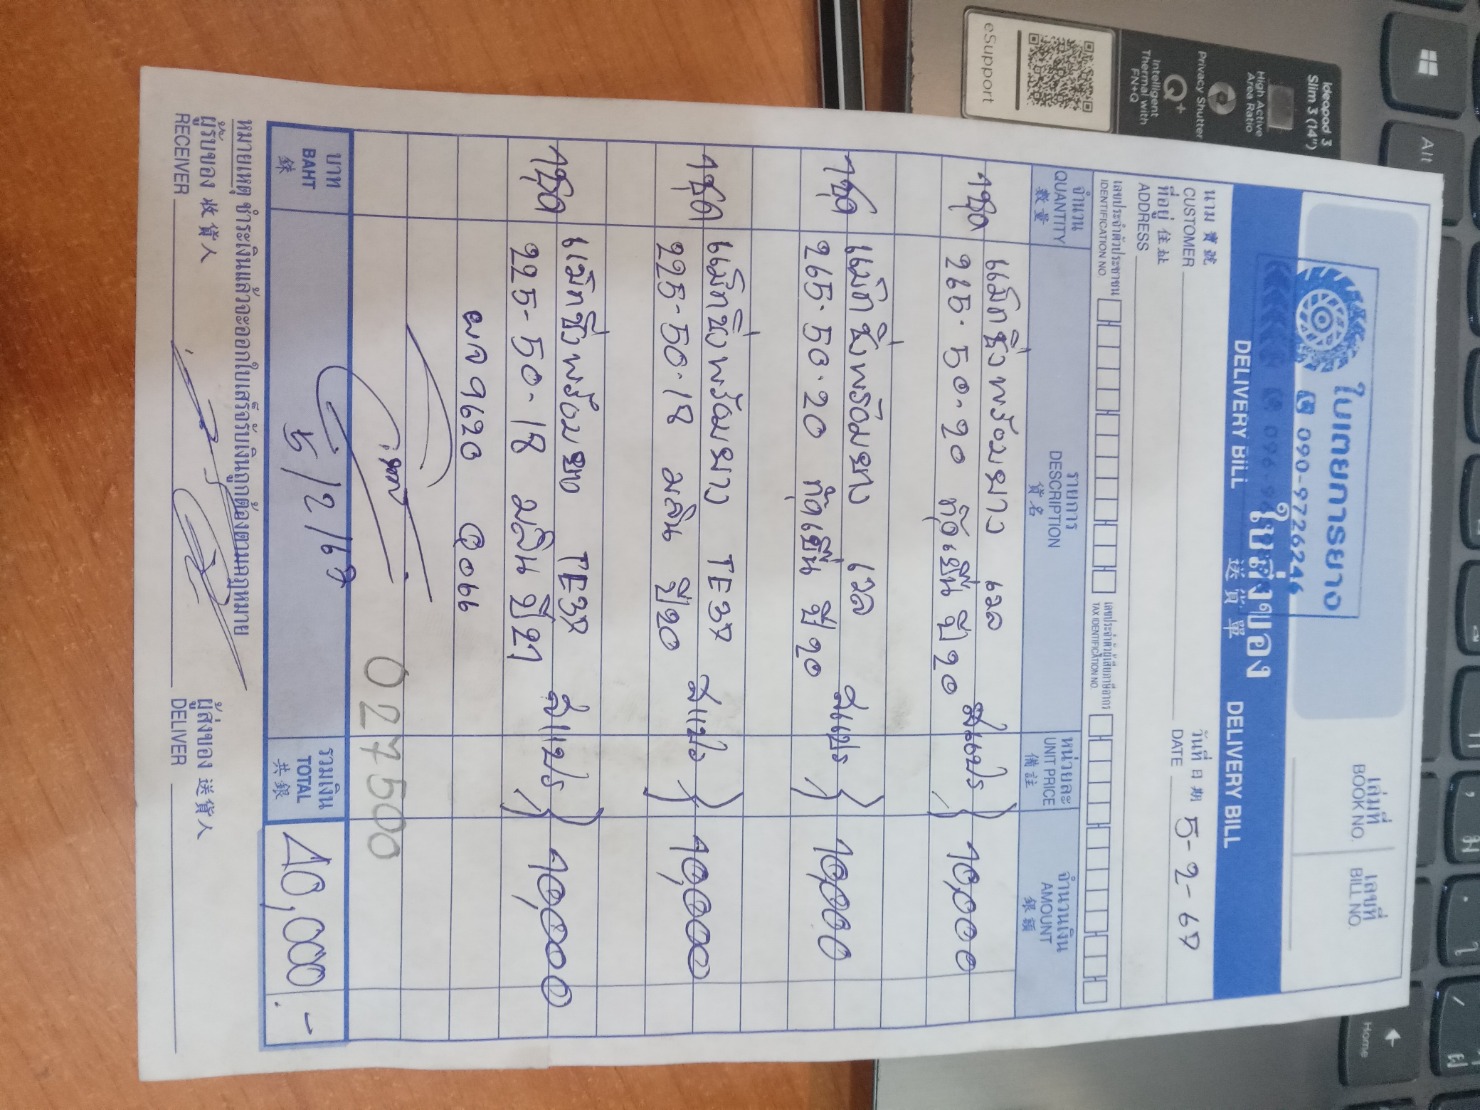 ใบเตยการยาง
090-9726246
เล่มที่
BOOK NO.
เลขที่
BILL NO.
DELIVERY BILL ใบส่งของ 送貨單 DELIVERY BILL
นาม 寶號
CUSTOMER
วันที่ 日期
DATE 5-2-67
ที่อยู่ 住址
ADDRESS
เลขประจำตัวประชาชน
IDENTIFICATION NO.
เลขประจำตัวผู้เสียภาษีอากร
TAX IDENTIFICATION NO.
จำนวน QUANTITY 數量
รายการ DESCRIPTION 貨名
หน่วยละ UNIT PRICE 備註
จำนวนเงิน AMOUNT 銀額
1ชุด แม็กซิ่งพร้อมยาง เวล 10,000
265-50-20 กู๊ดเยีย ปี 20
1ชุด แม็กซิ่งพร้อมยาง เวล 10,000
265-50-20 กู๊ดเยีย ปี 20
1ชุด แม็กซิ่งพร้อมยาง TE37 10,000
225-50-18 มลิน ปี 20
1ชุด แม็กซิ่งพร้อมยาง TE37 10,000
225-50-18 มลิน ปี 21
ผล 9620
027500
5/2/67
บาท BAHT 銖
รวมเงิน TOTAL 共銀
40,000.-
หมายเหตุ ชำระเงินแล้วจะออกใบเสร็จรับเงินถูกต้องตามกฎหมาย
ผู้รับของ 收貨人
RECEIVER
ผู้ส่งของ 送貨人
DELIVER
Ideapad 3
Slim 3 (14")
High Active
Area Ratio
Privacy Shutter
Q+
Intelligent
Thermal with
FN+Q
eSupport
Alt
Home